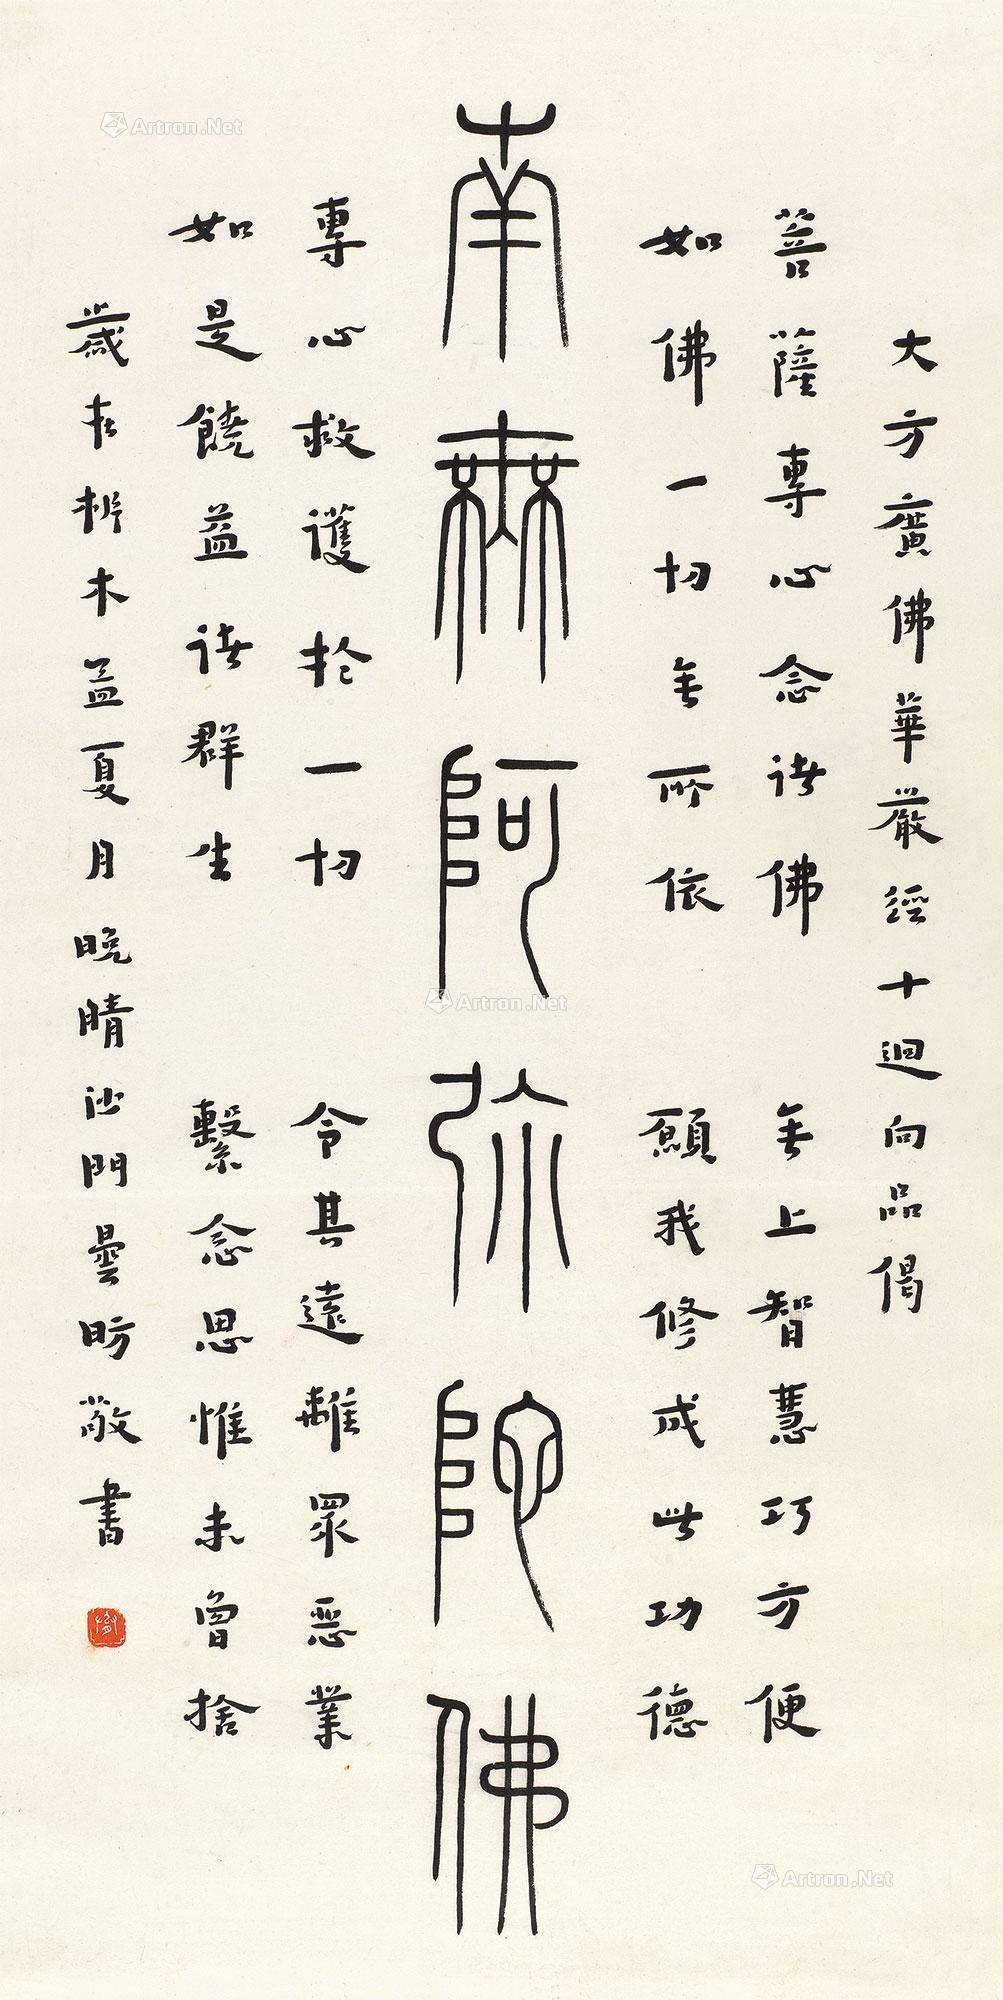 大方廣佛華嚴經十迴向品偈
菩薩專心念諸佛 無上智慧巧方便
如佛一切無所依 願我修成此功德
南無阿弥陀佛
專心救護於一切 令其遠離眾惡業
如是饒益諸群生 繫念思惟未曾捨
歲在析木孟夏月晚晴沙門曇昉敬書
Artron.Net
Artron.Net
Artron.Net